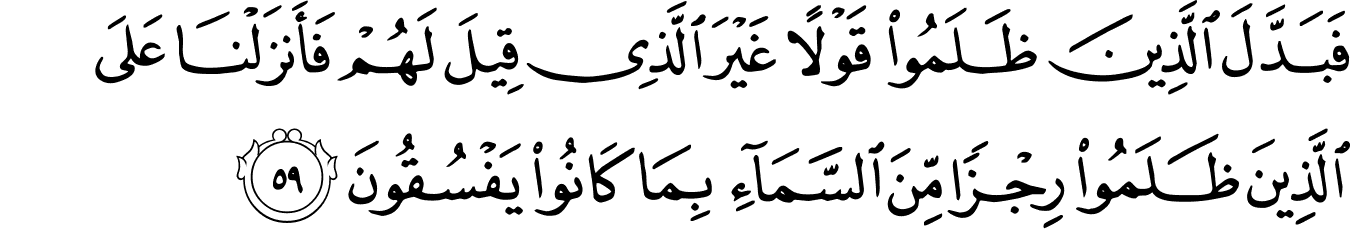 فَبَدَّلَ ٱلَّذِينَ ظَلَمُوا۟ قَوْلًا غَيْرَ ٱلَّذِى قِيلَ لَهُمْ فَأَنزَلْنَا عَلَى
ٱلَّذِينَ ظَلَمُوا۟ رِجْزًا مِّنَ ٱلسَّمَآءِ بِمَا كَانُوا۟ يَفْسُقُونَ ٥٩